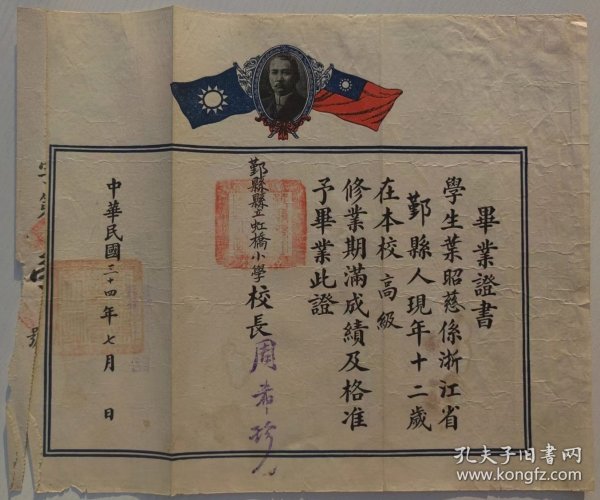 畢業證書
學生葉昭慈係浙江省
鄞縣人現年十二歲
在本校高級
修業期滿成績及格准
予畢業此證
鄞縣縣立虹橋小學校長周
中華民國三十四年七月 日
號
孔夫子旧书网
www.kongfz.com